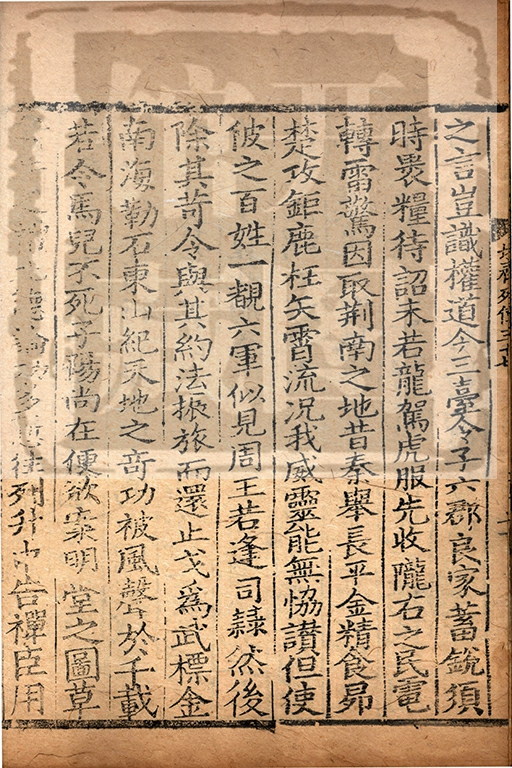 之言豈識權道今三臺令子六郡良家蓄銳須
時畏糧待詔未若龍駕虎服先收隴右之民電
轉雷驚因取荆南之地昔秦舉長平金精食昴
楚攻鉅鹿枉矢霄流况我威靈能無協讃但使
彼之百姓一覩六軍似見周王若逢司隷然後
除其苛令與其約法振旅而還止戈爲武標金
南海勒石東山紀天地之奇功被風聲於千載
若令馬兒不死子陽尚在便欲案明堂之圖草
列升中告禪臣用